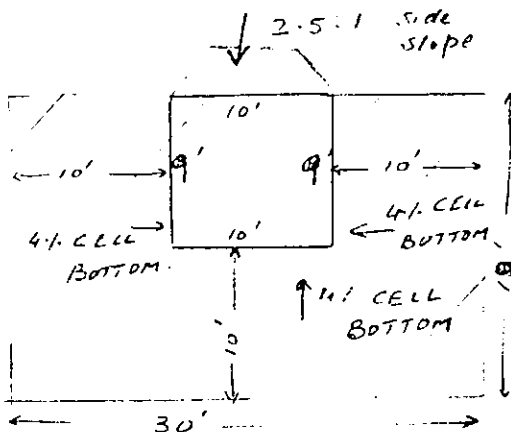 2.5:1 side
slope
10'
10'
10'
4% CELL
BOTTOM
10'
4% CELL
BOTTOM
4% CELL
BOTTOM
10'
30'